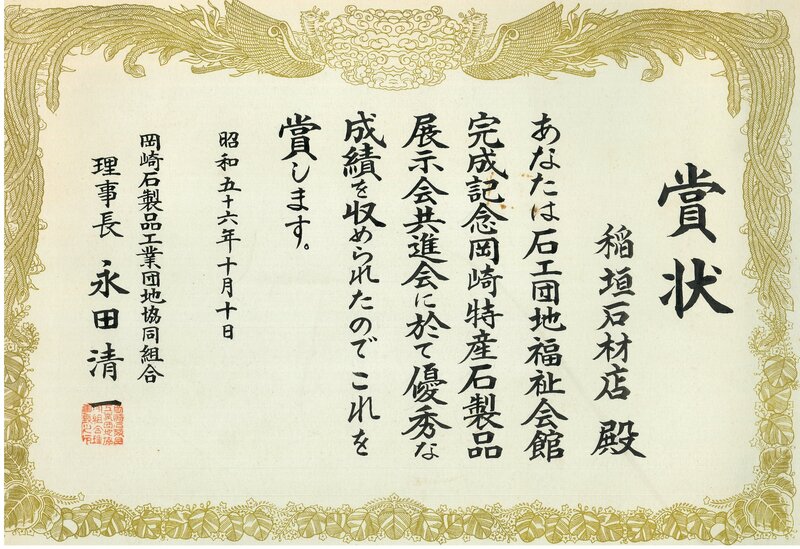 賞状
稲垣石材店 殿
あなたは石工団地福祉会館
完成記念岡崎特産石製品
展示会共進会に於て優秀な
成績を収められたのでこれを
賞します。
昭和五十六年十月十日
岡崎石製品工業団地協同組合
理事長 永田清一